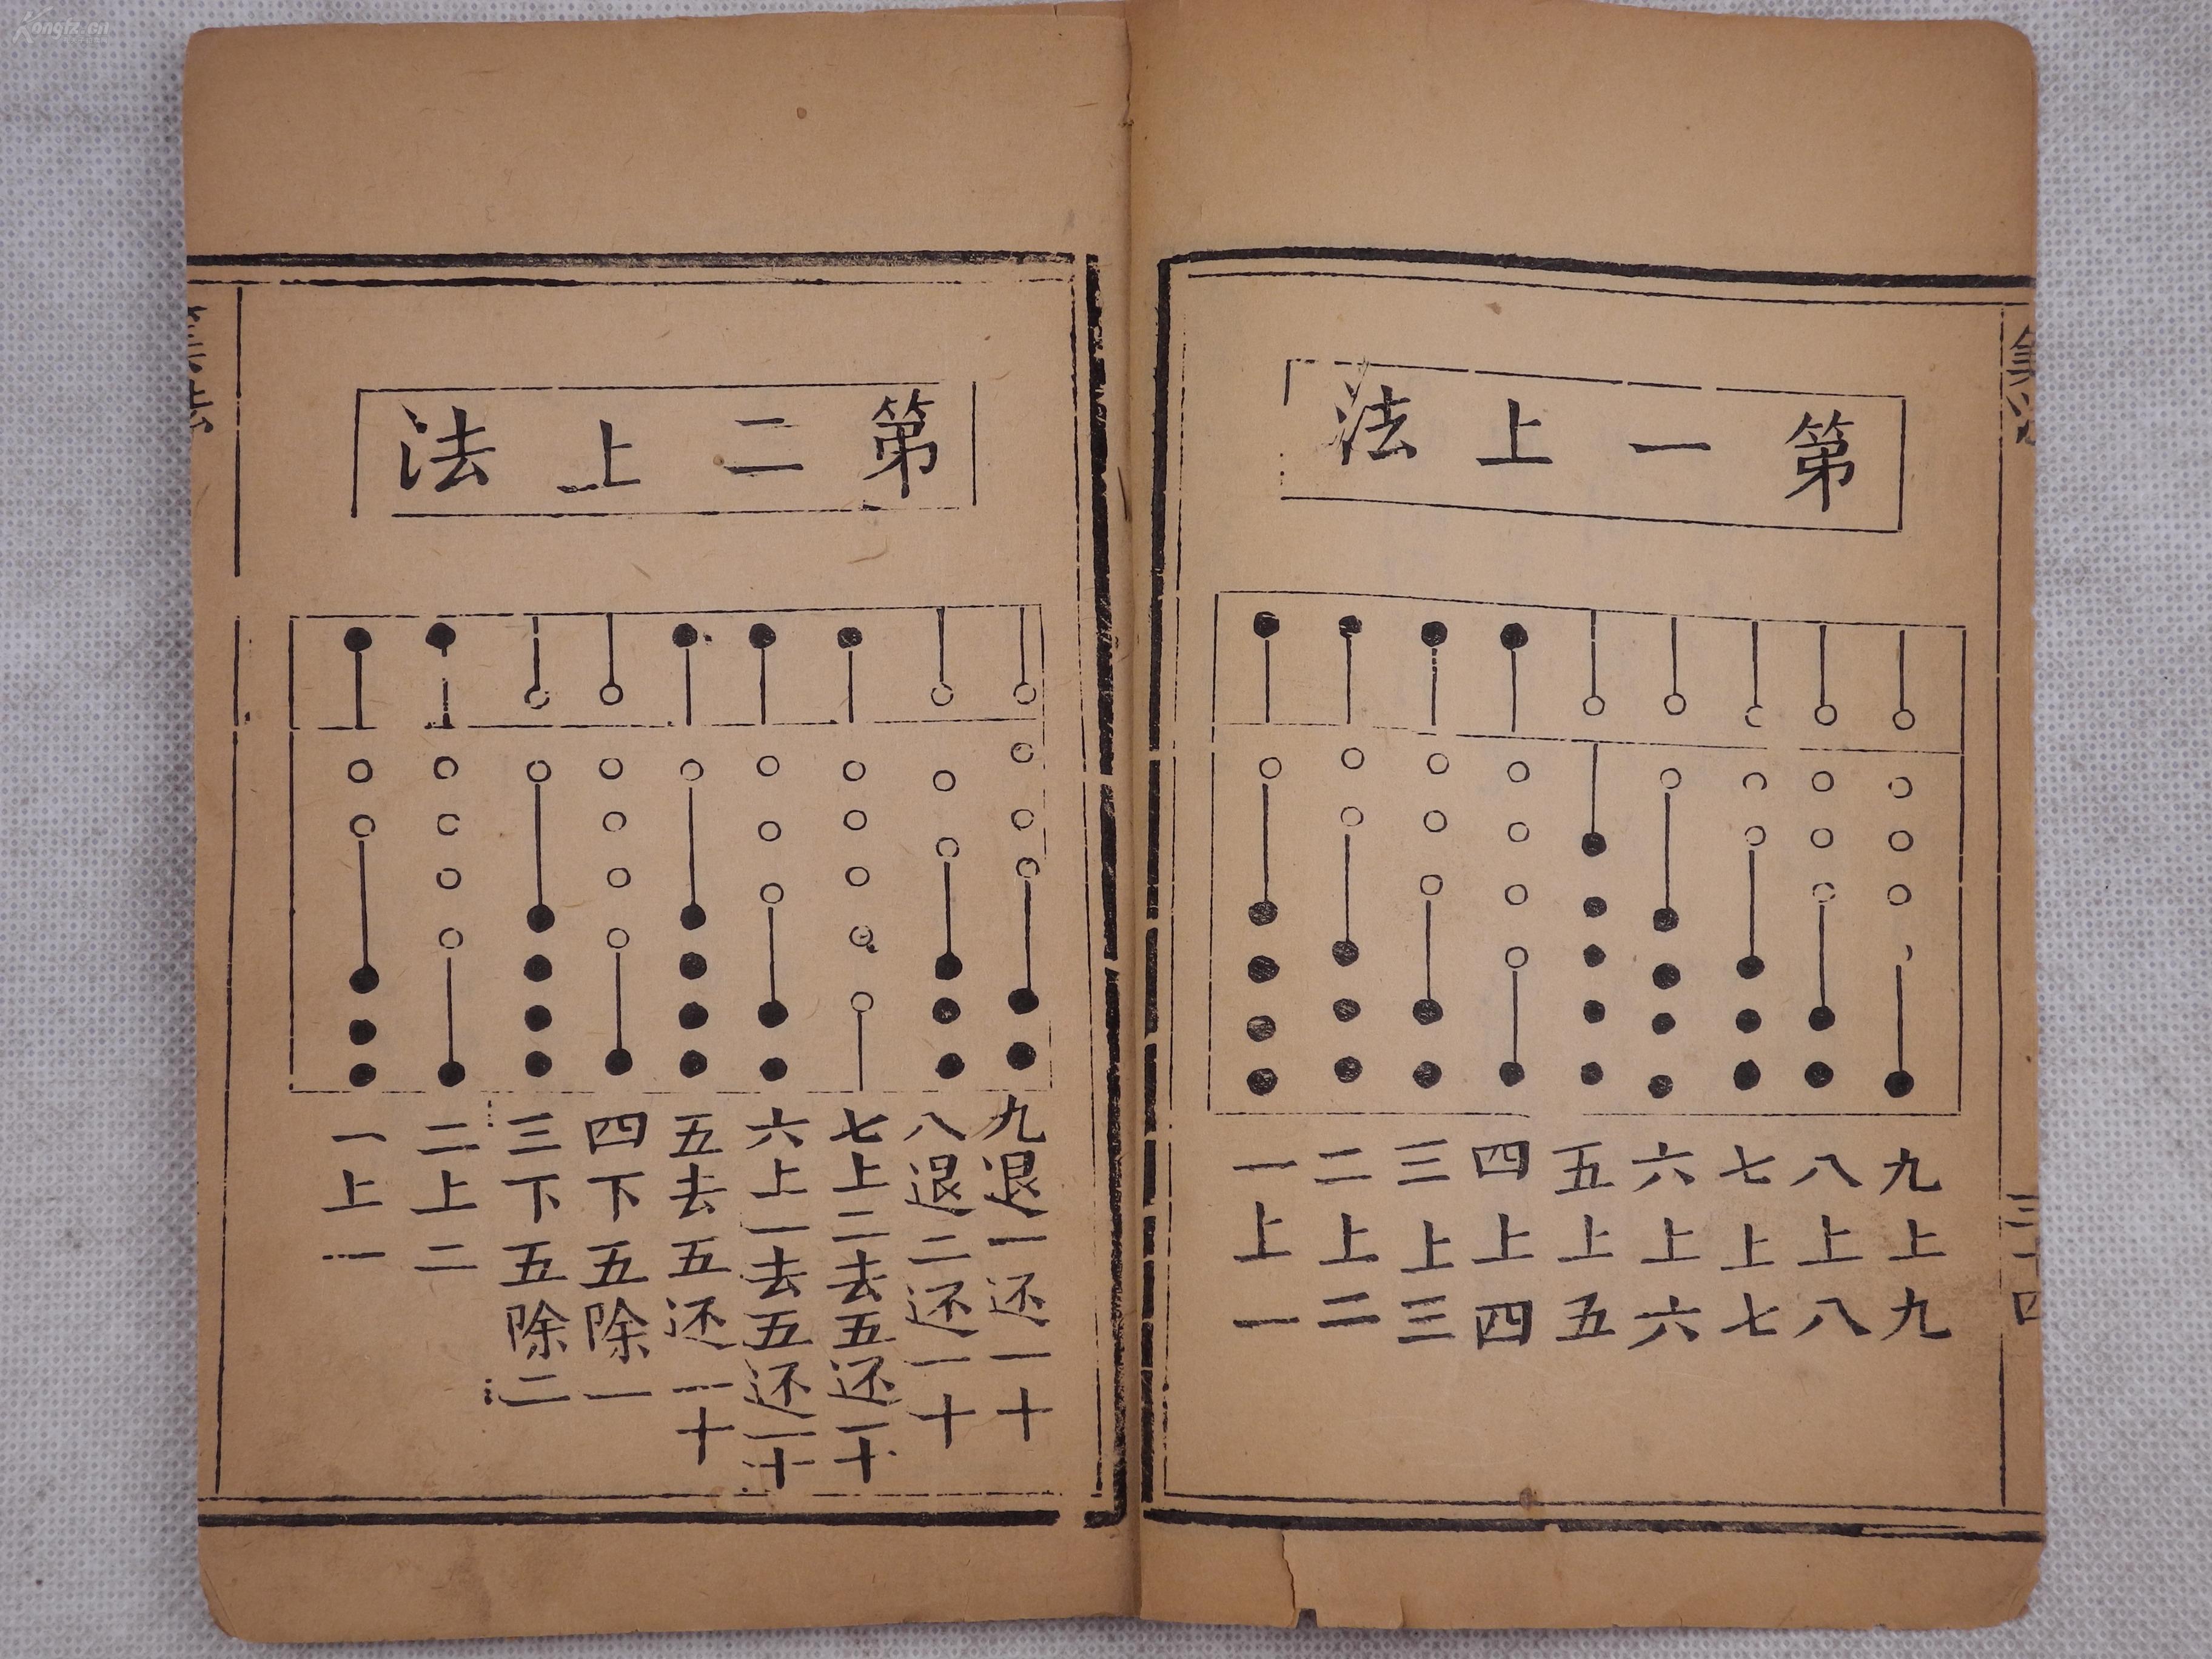 Kongfz.cn
第一上法
九上九
八上八
七上七
六上六
五上五
四上四
三上三
二上二
一上一
三十四
第二上法
九退一还一十
八退二还一十
七上二去五还一十
六上一去五还一十
五去五还一十
四下五除一
三下五除二
二上二
一上一